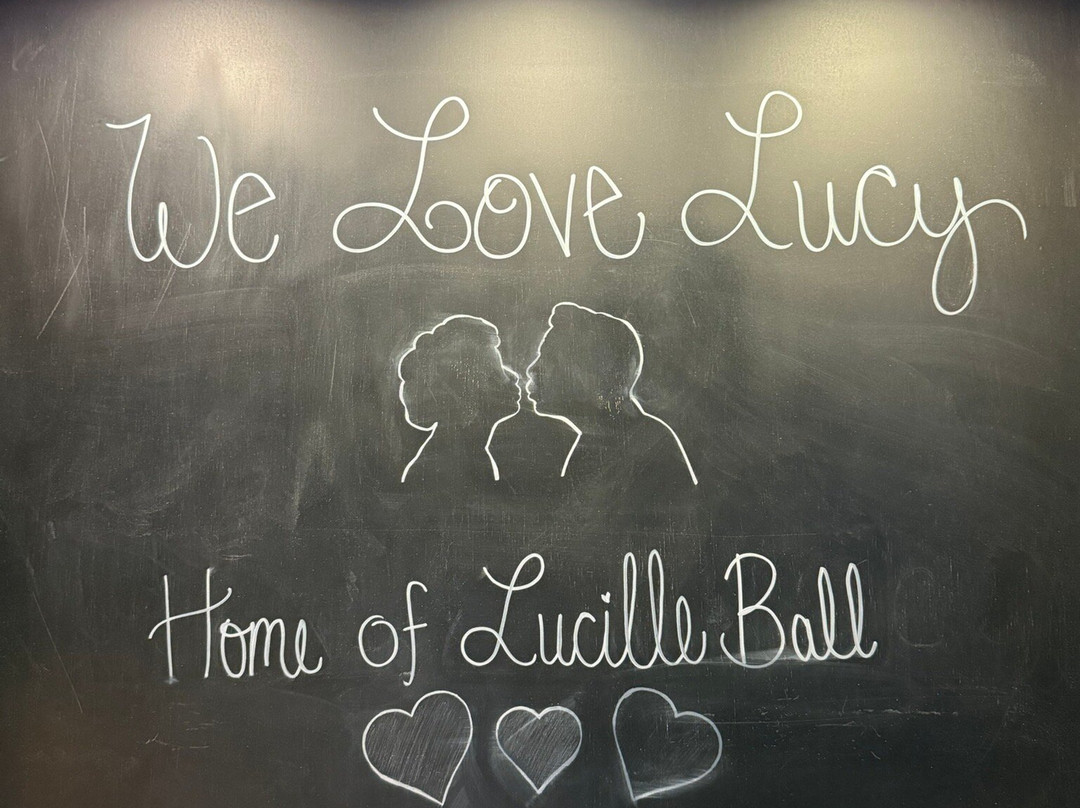 We Love Lucy
Home of Lucille Ball